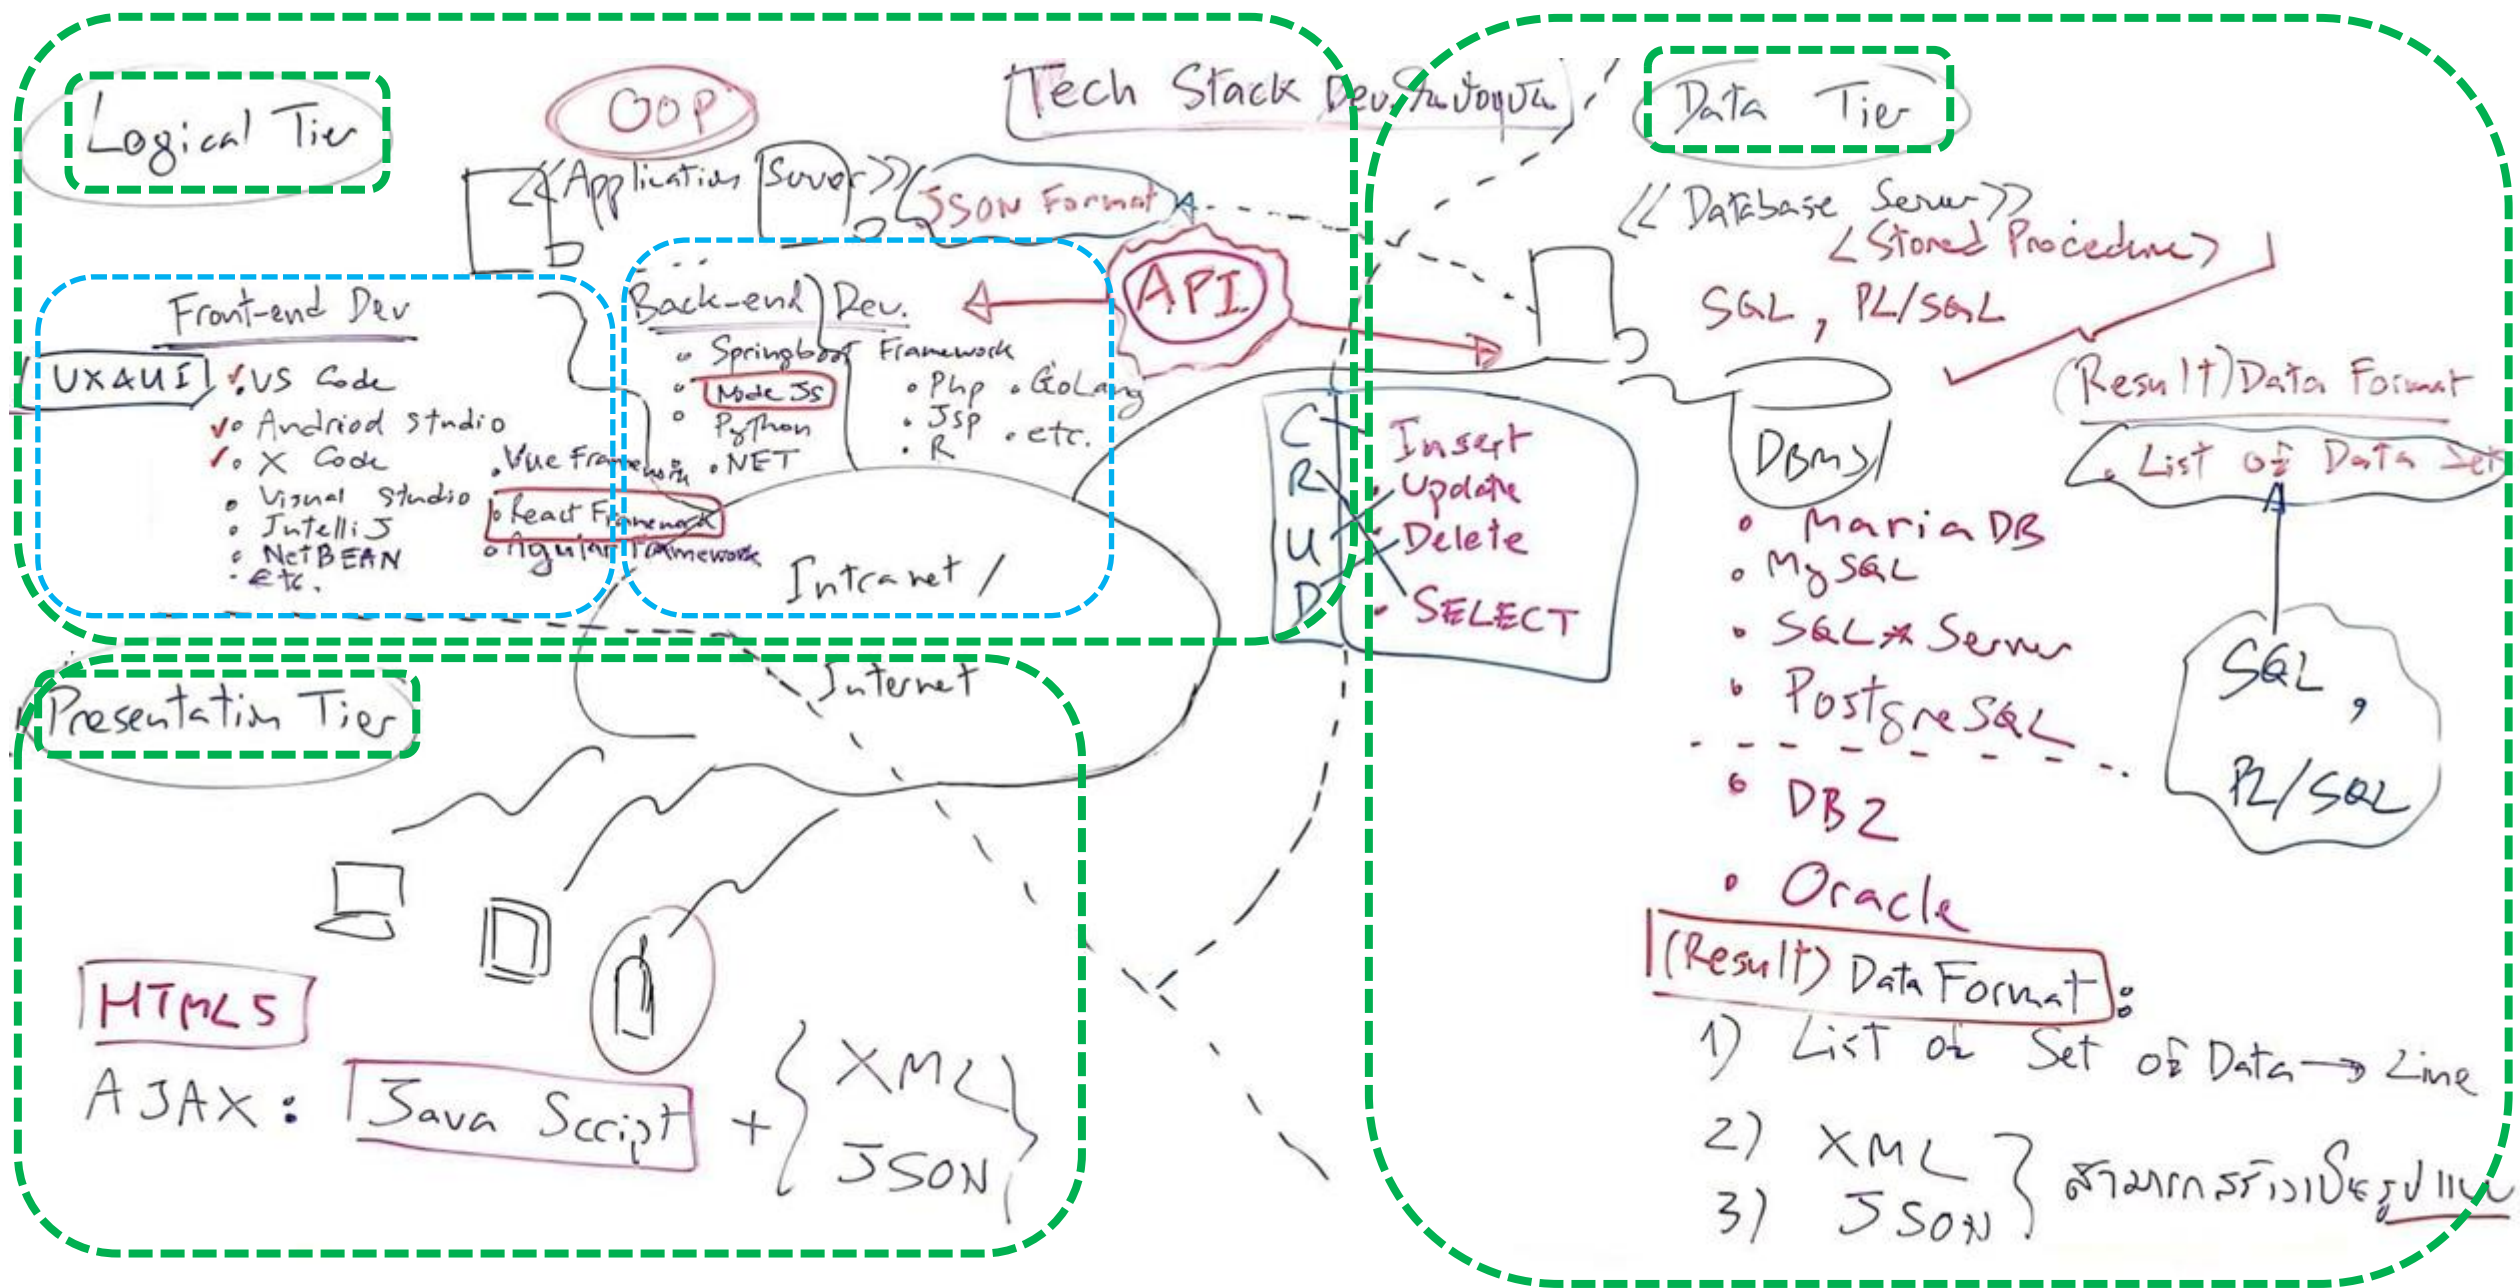 Logical Tier
OOP
Tech Stack Dev. ในปัจจุบัน
<<Application Server>>
JSON Format
API
Front-end Dev
UX&UI
VS Code
Andriod Studio
X Code
Visual Studio
IntelliJ
NetBEAN
etc.
Vue Framework
React Framework
Agular Framework
Back-end Dev.
Springboot Framework
Node JS
Python
.NET
Php
GoLang
Jsp
etc.
R
Intranet /
Internet
C
R
U
D
Insert
Update
Delete
SELECT
Data Tier
<<Database Server>>
<Stored Procedure>
SQL, PL/SQL
DBMS
(Result) Data Format
List of Data Set
MariaDB
MySQL
SQL* Server
PostgreSQL
DB2
Oracle
SQL,
PL/SQL
(Result) Data Format:
1) List of Set of Data → Line
2) XML
3) JSON
สามารถสร้างเป็นรูปแบบ
Presentation Tier
HTML5
AJAX: Java Script + { XML
JSON }